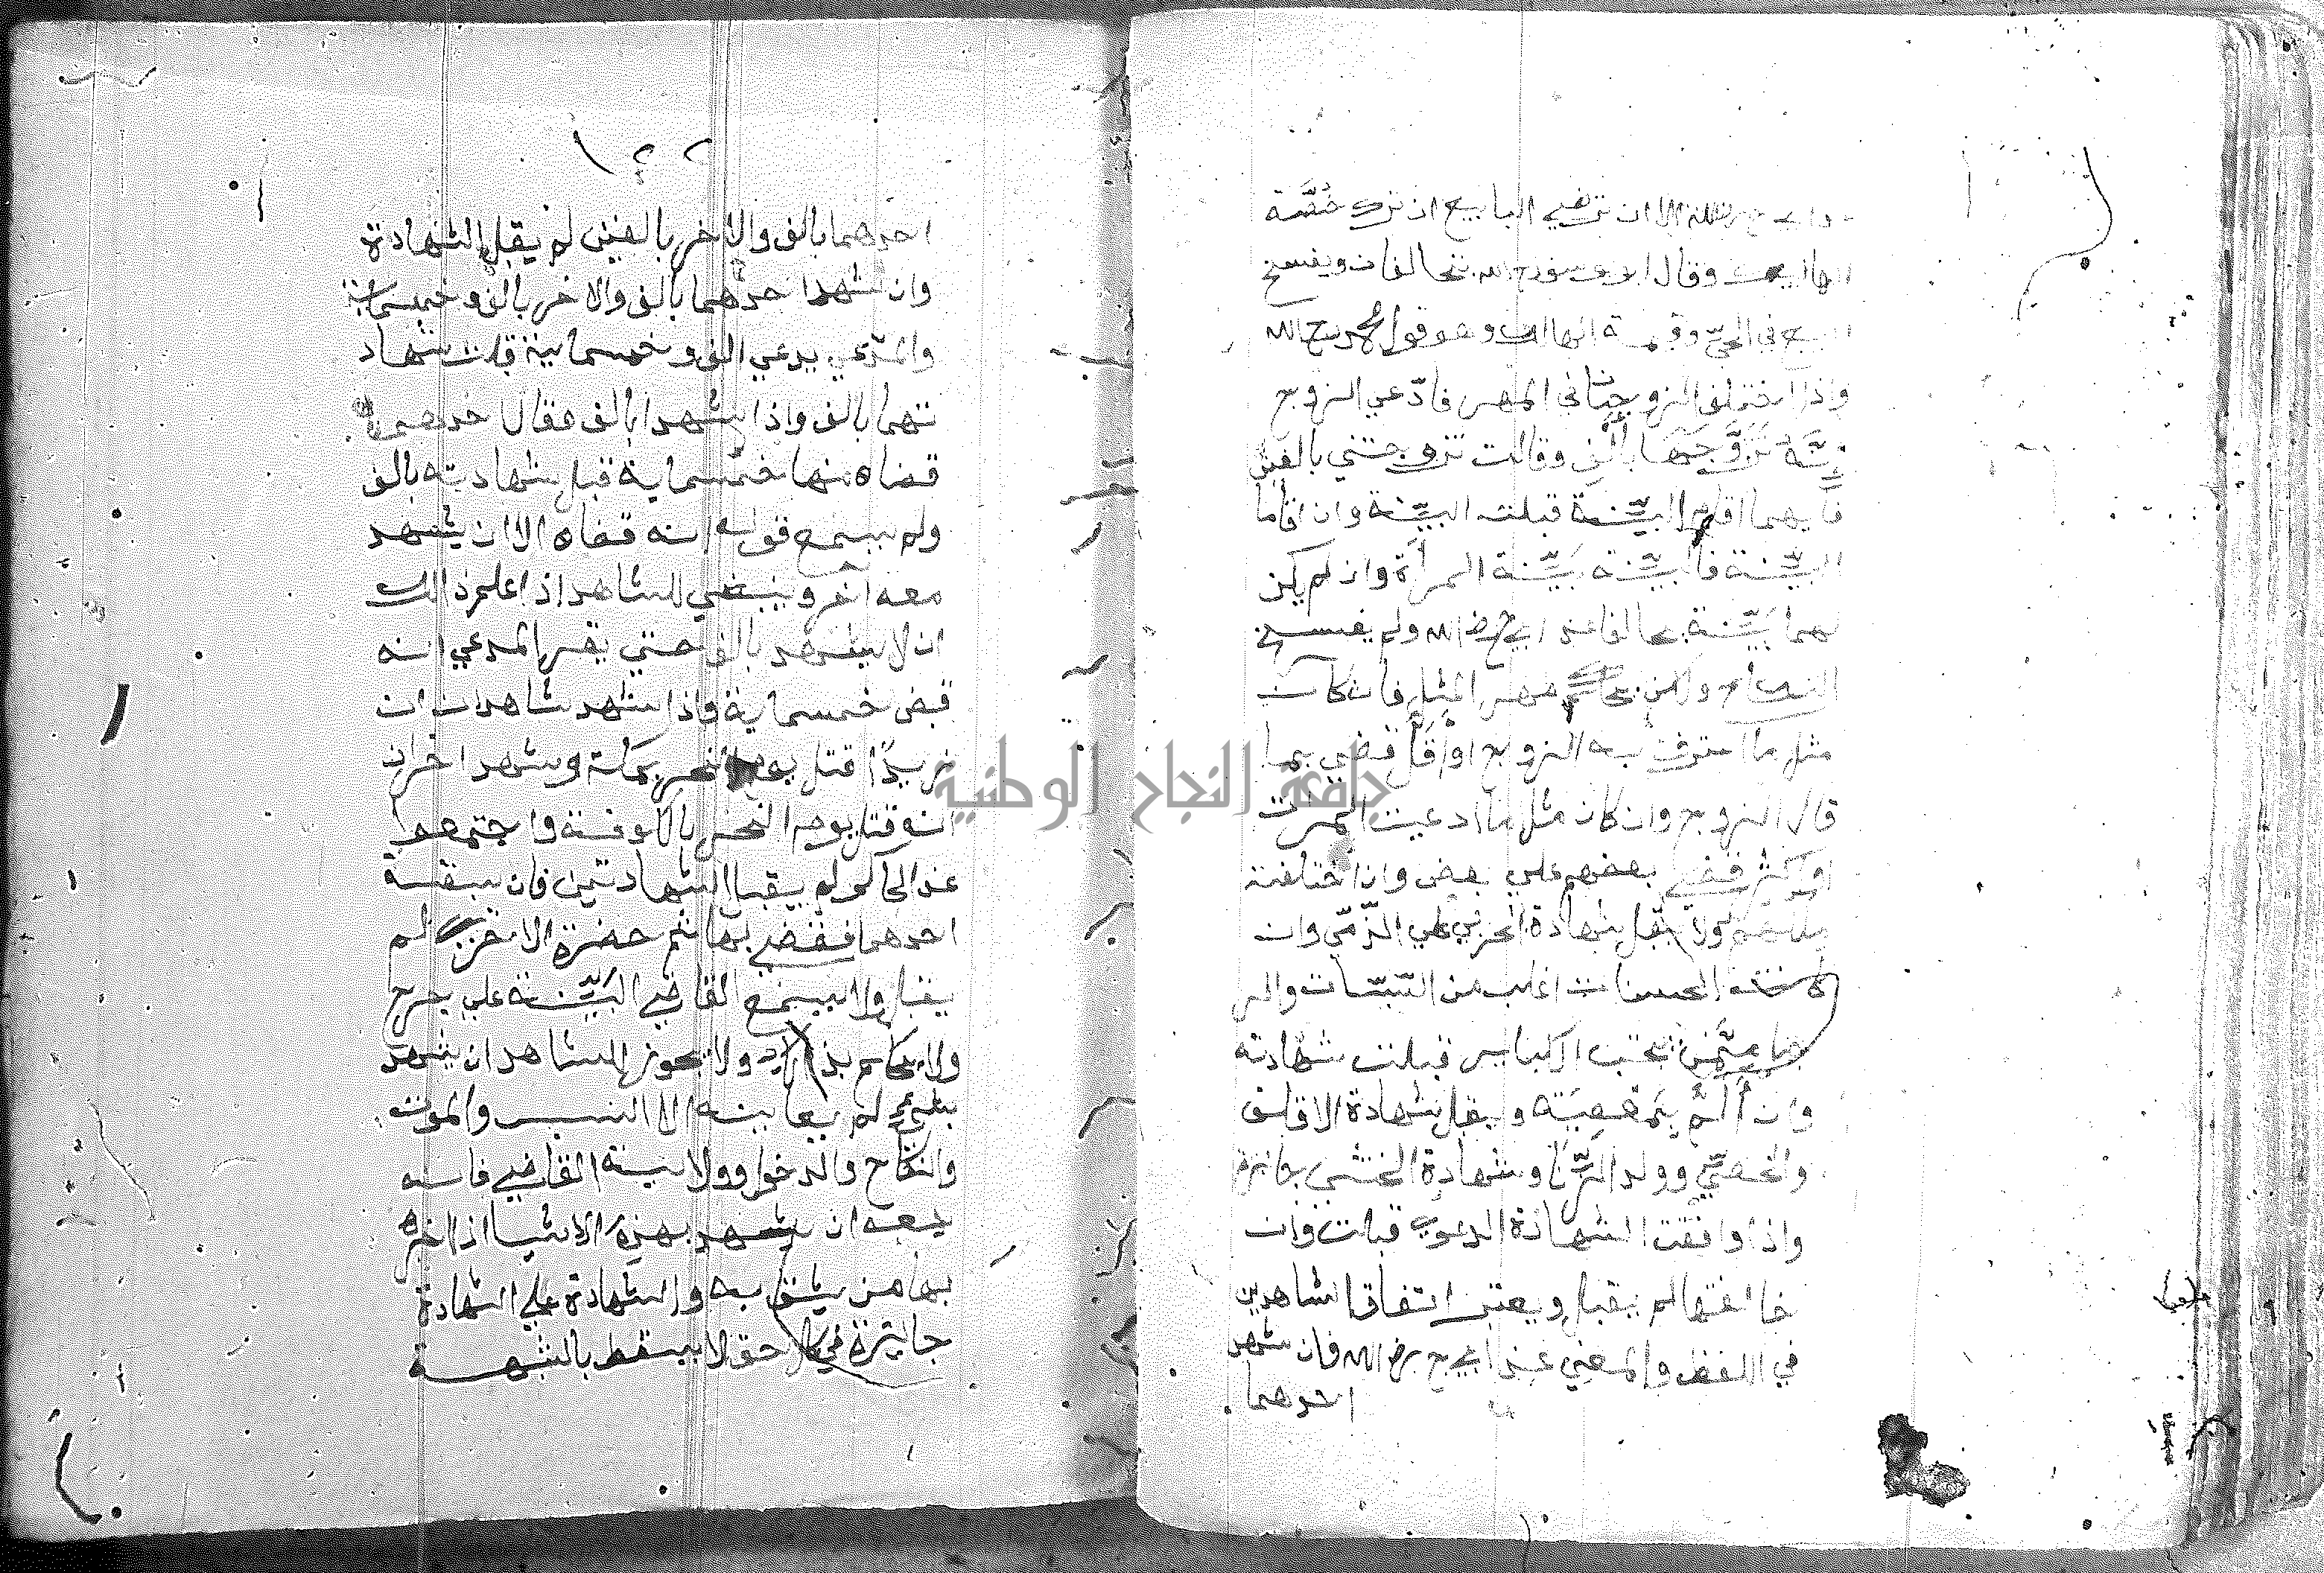 الا ان ترضي البايع ان ترك حصة
وقال ابو يوسف رح الله يتحالفان ويفسخ
البيع في الحي وقيمة الهالك وهو قول محمد رح الله
واذا اختلف الزوجان في المهر فادعي الزوج
انه تزوجها بألف وقالت تزوجتني بالفين
فأيهما اقام البينة قبلت البينة وان اقاما
البينة فالبينة بينة المرأة وان لم يكن
لهما بينة تحالفا عند ابي ح رض الله ولم يفسخ
النكاح ولكن يحكم مهر المثل فان كان
مثل ما اعترف به الزوج او اقل قضي بما
قال الزوج وان كان مثل ما ادعيت المرات
او كثر قضي بعضهم علي بعض وان اختلفت
مللهم ولا تقبل شهادة الحربي علي الذمي وان
كانت الحسنات اغلب من السيئات والر
جل ممن يجتنب الكبايس قبلت شهادته
وان ألم بمعصيته ويقبل شهادة الاقلف
والخصي وولد الزنا وشهادة الخنثي جائزة
واذا وافقت الشهادة الدعوي قبلت وان
خالفتها لم يقبل ويعتبر اتفاق الشاهدين
في اللفظ والمعني عند ابي ح رض الله فان شهد
احدهما
١٤٢
احدهما بالف والاخر بالفين لم يقبل الشهادة
وان شهد احدهما بالف والاخر بالف وخمسماية
والمدعي يدعي الف وخمسماية قبلت شهاد
تهما بالف واذا شهدا بالف فقال احدهما
قضاه منها خمسماية قبل شهادته بالف
ولم يسمع قوله انه قضاه الا ان يشهد
معه اخر وينبغي للشاهد اذ اعلم ذالك
ان لا يشهد بالف حتي يقر المدعي انه
قبض خمسماية واذا شهد شاهدان ان
زيدا قتل يوم النحر بمكة وشهد اخران
انه قتل يوم النحر بالكوفة واجتمعوا
عند الحاكم لم يقبل الشهادتين فان سبقة
احدهما فقضي بها ثم حضرة الاخري لم
يقبل ولا يسمع القاضي البينة علي جرح
ولا يحكم بذالك ولا يجوز للشاهد ان يشهد
بشيء لم يعاينه الا النسب والموت
والنكاح والدخول وولاية القاضي فانه
يسعه ان يشهد بهذه الاشيا اذا اخبره
بها من يثق به والشهادة علي الشهادة
جائزة في كل حق لا يسقط بالشبهة
جامعة النجاح الوطنية